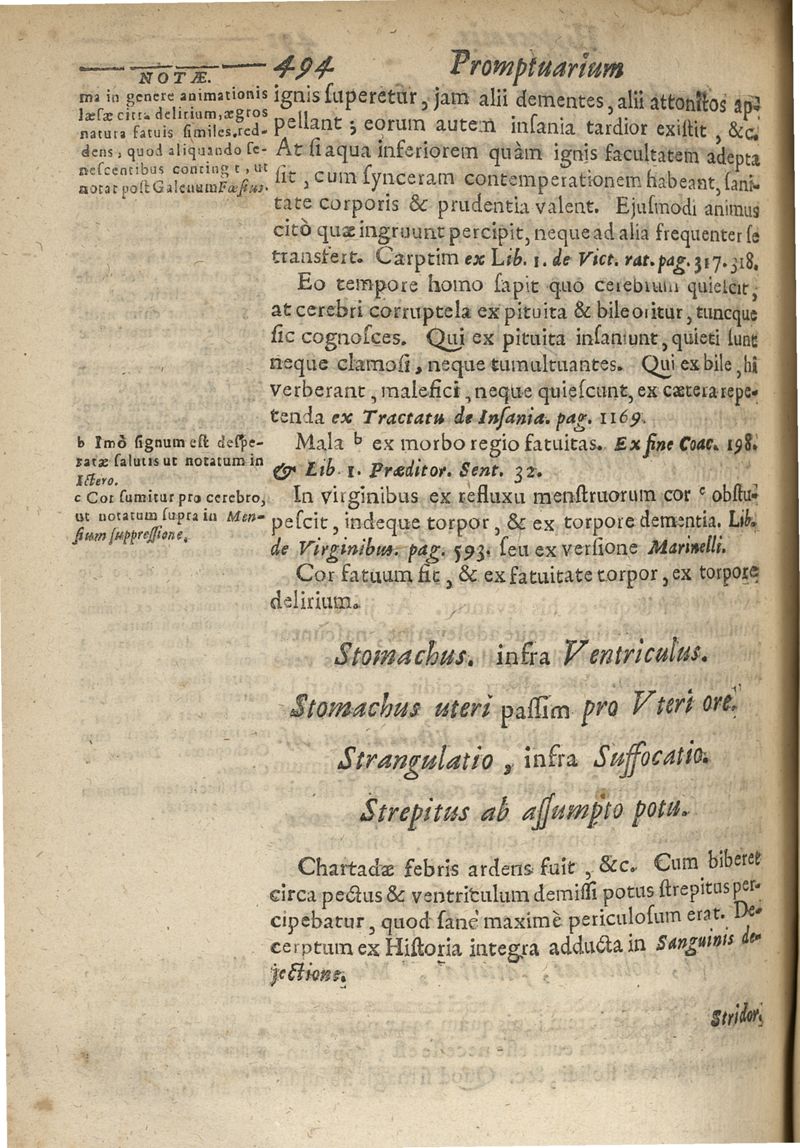 494 Promptuarium
NOTÆ.
ma in genere animationis
læſæ citra delirium, ægros
natura fatuis ſimiles, red-
dens, quod aliquando ſe-
neſcentibus conting t, ut
notat poſt Galenum Fœſius.
ignis ſuperetur, jam alii dementes, alii attonitos ap-
pellant; eorum autem inſania tardior exiſtit, &c.
At ſi aqua inferiorem quàm ignis facultatem adepta
ſit, cum ſynceram contemperationem habeant, ſani-
tate corporis & prudentia valent. Ejuſmodi animus
citò quæ ingruunt percipit, neque ad alia frequenter ſe
transfert. Carptim ex Lib. 1. de Vict. rat. pag. 317. 318.
Eo tempore homo ſapit quo cerebrum quieſcit,
at cerebri corruptela ex pituita & bile oritur, tuncque
ſic cognoſces. Qui ex pituita inſaniunt, quieti ſunt
neque clamoſi, neque tumultuantes. Qui ex bile, hi
verberant, malefici, neque quieſcunt, ex cætera repe-
tenda ex Tractatu de Inſania. pag. 1169.
b Imò ſignum eſt deſpe-
ratæ ſalutis ut notatum in
Ictero.
c Cor ſumitur pro cerebro,
ut notatum ſupra in Men-
ſium ſuppreſſione.
Mala b ex morbo regio fatuitas. Ex fine Coac. 198.
& Lib. 1. Præditor. Sent. 32.
In virginibus ex refluxu menſtruorum cor c obſtu-
peſcit, indeque torpor, & ex torpore dementia. Lib.
de Virginibus. pag. 593. ſeu ex verſione Marinelli.
Cor fatuum fit, & ex fatuitate torpor, ex torpore
delirium.
Stomachus. infra Ventriculus.
Stomachus uteri paſſim pro Uteri ore.
Strangulatio, infra Suffocatio.
Strepitus ab aſſumpto potu.
Chartadæ febris ardens fuit, &c. Cum biberet
circa pectus & ventriculum demiſſi potus ſtrepitus per-
cipebatur, quod ſanè maximè periculoſum erat. De-
cerptum ex Hiſtoria integra adducta in Sanguinis de-
jectione.
Stridor,